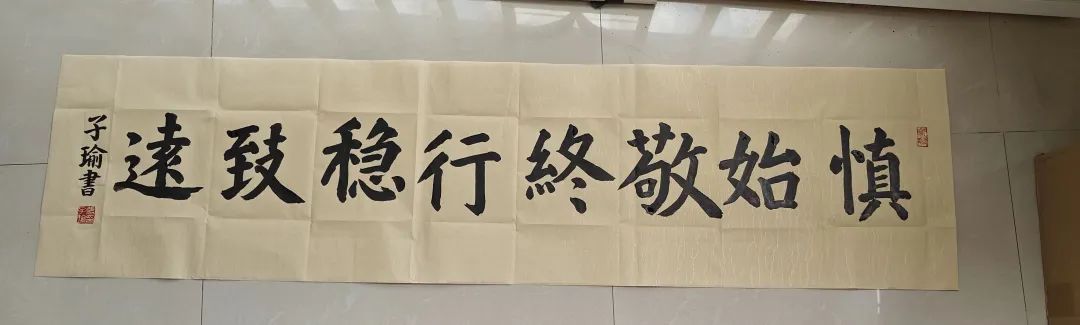 慎始敬終行稳致遠
子瑜書